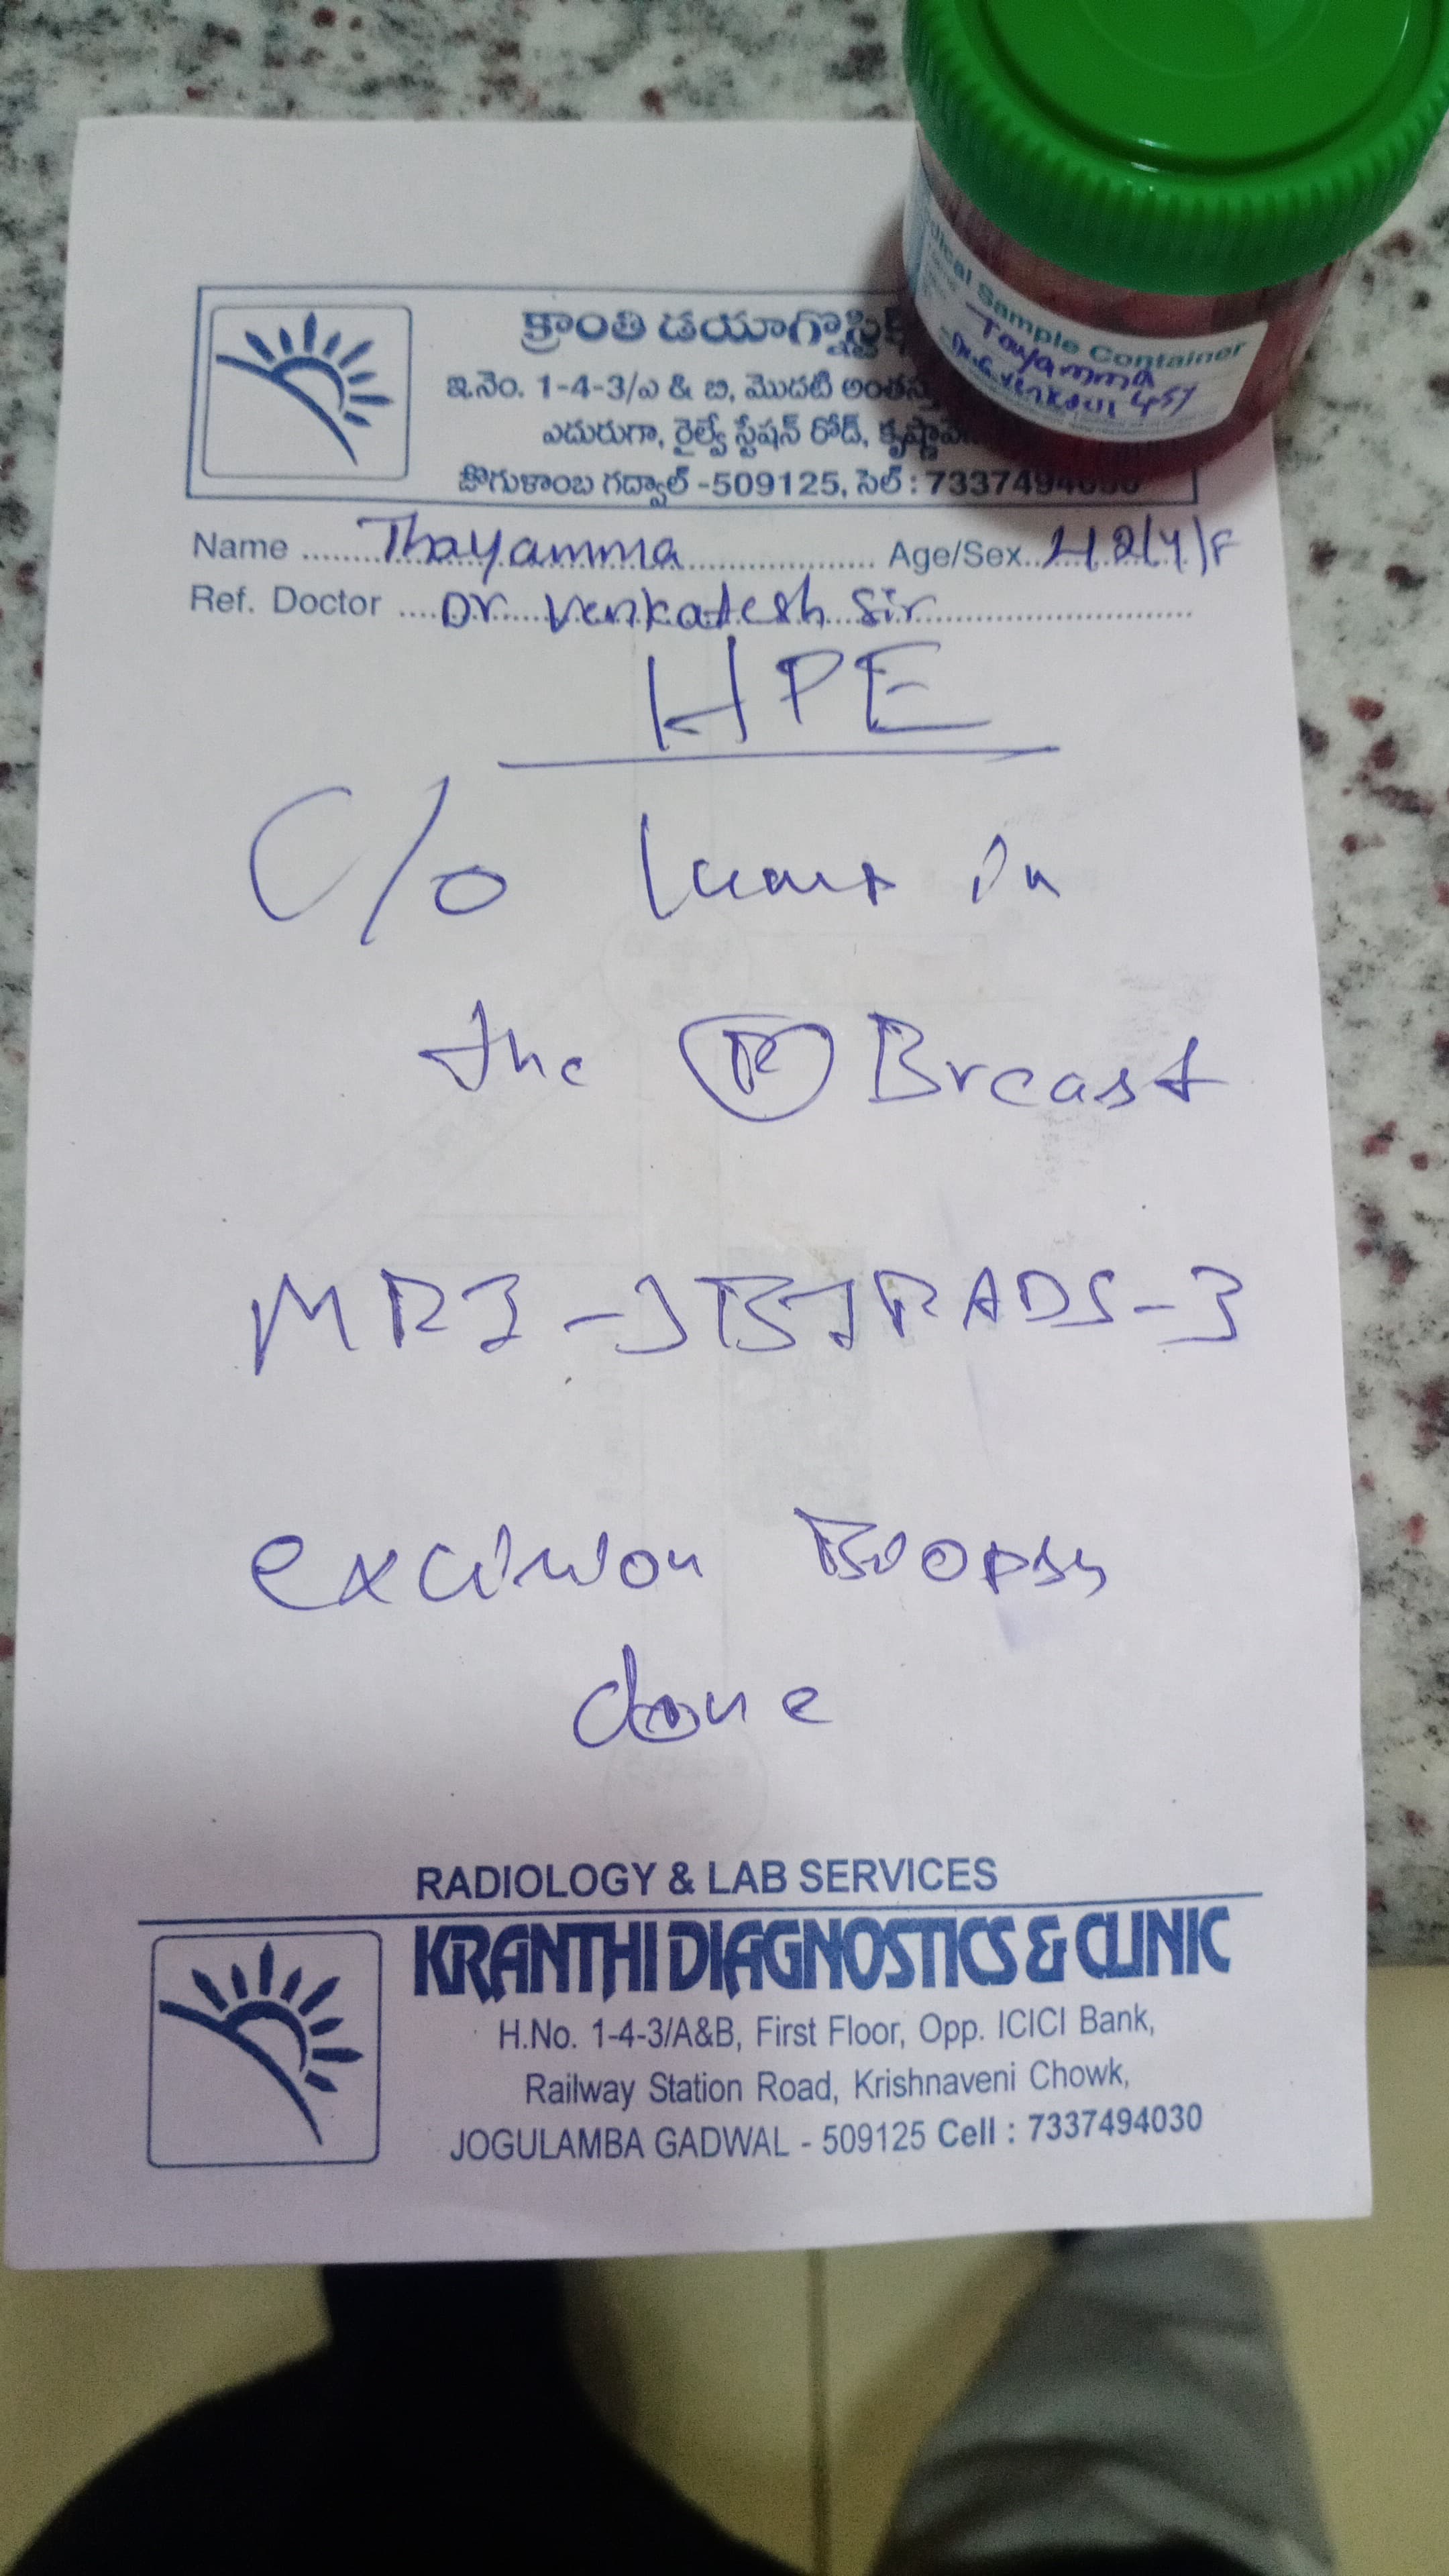 క్రాంతి డయాగ్నొస్టిక్
ఇ.నెం. 1-4-3/ఎ & బి, మొదటి అంతస్తు
ఎదురుగా, రైల్వే స్టేషన్ రోడ్, కృష్ణావే
జోగుళాంబ గద్వాల్ -509125, సెల్ : 7337494030
Sample Container
Tayamma
45y
Name Thayamma Age/Sex 42/Y/F
Ref. Doctor Dr Venkatesh Sir
HPE
C/o lump in
the R Breast
MRI - BIRADS-3
excision Biopsy
done
RADIOLOGY & LAB SERVICES
KRANTHI DIAGNOSTICS & CLINIC
H.No. 1-4-3/A&B, First Floor, Opp. ICICI Bank,
Railway Station Road, Krishnaveni Chowk,
JOGULAMBA GADWAL - 509125 Cell : 7337494030